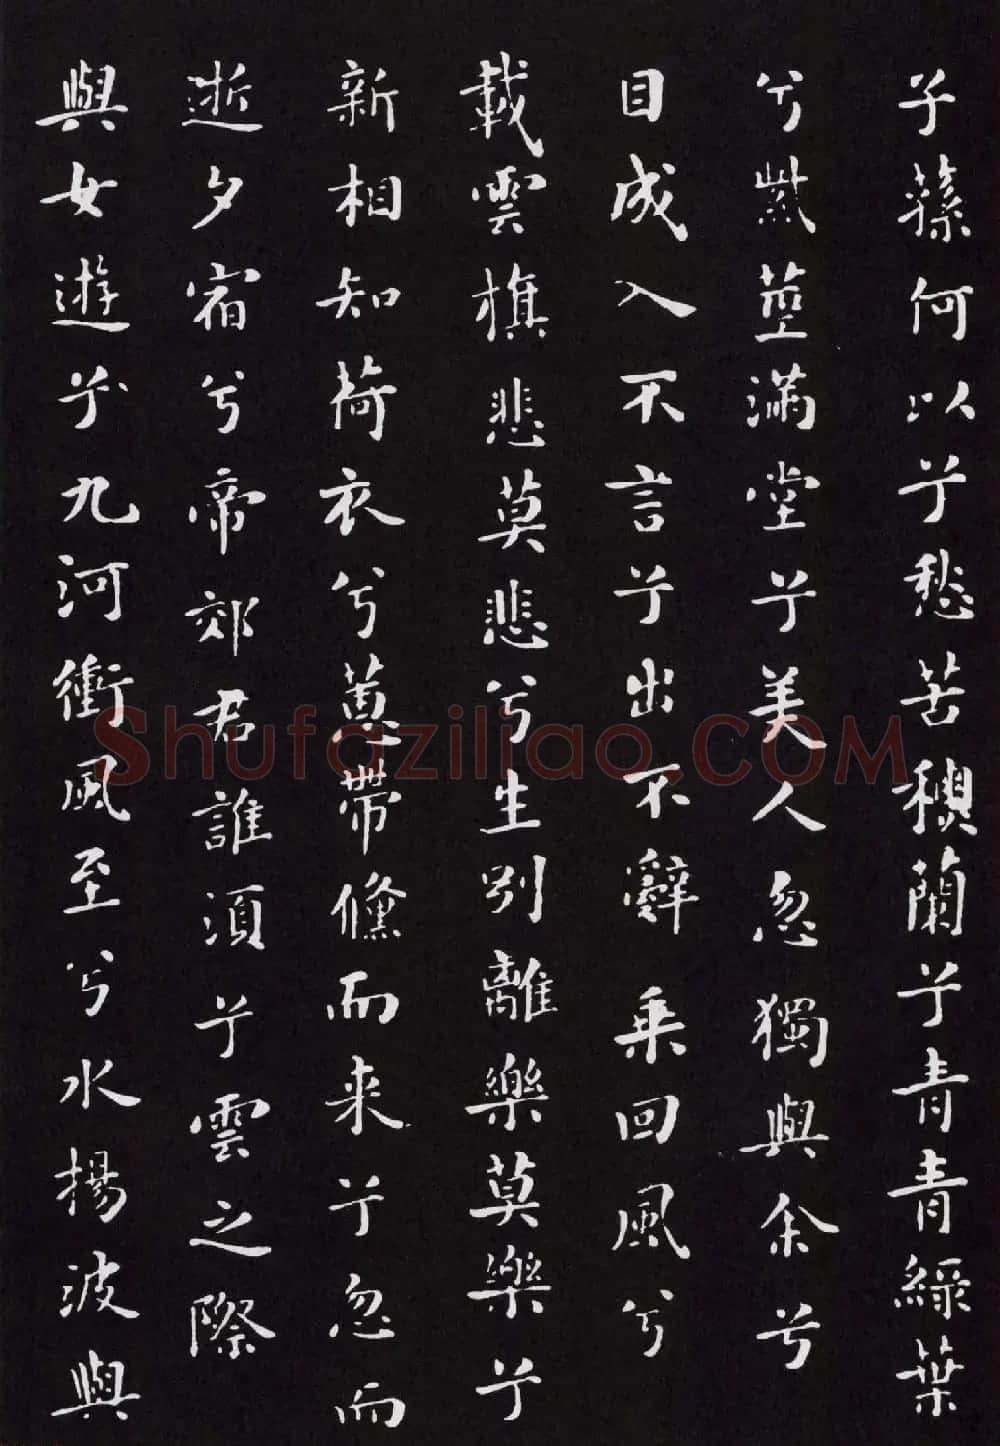 子蓀何以兮愁苦穐蘭兮青青綠葉
兮紫莖滿堂兮美人忽獨與余兮
目成入不言兮出不辭乘回風兮
載雲旗悲莫悲兮生別離樂莫樂兮
新相知荷衣兮蕙帶儵而来兮忽而
逝夕宿兮帝郊君誰須兮雲之際
與女遊兮九河衝風至兮水揚波與
Shufaziliao.COM